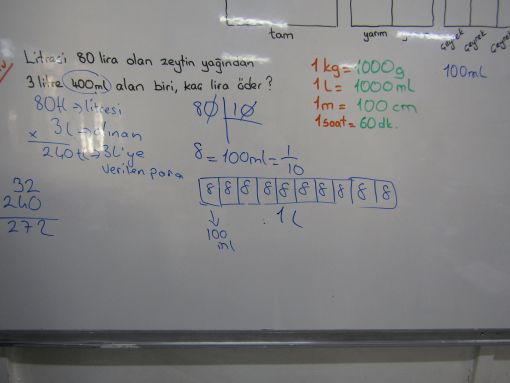 tam
yarım
çeyrek çeyrek çeyrek
Litresi 80 lira olan zeytin yağından
3 litre 400ml alan biri, kaç lira öder?
1 kg = 1000 g
1 L = 1000 mL
1 m = 100 cm
1 saat = 60 dk.
100 mL
80 tl → litresi
x 3L → alınan
240 tl → 3L'ye
verilen para
80 10
8 = 100 ml = 1/10
8 8 8 8 8 8 8 8 8 8
100 ml
1 L
32
240
272